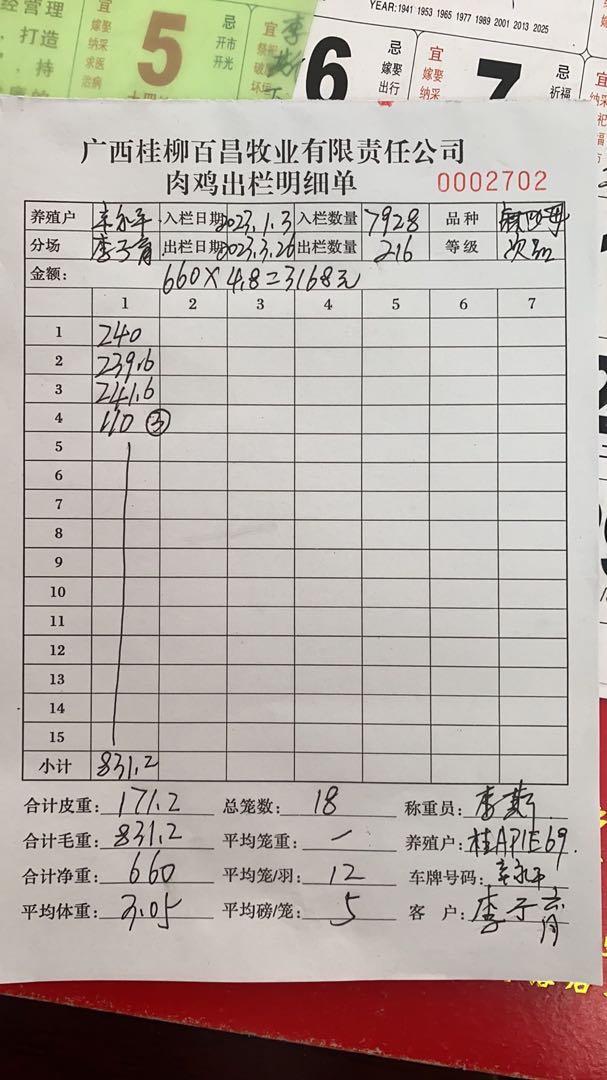 YEAR:1941 1953 1965 1977 1989 2001 2013 2025
经营管理
打造
持
5
忌
开市
开光
宜
6
忌
嫁娶
出行
宜
嫁娶
纳采
7
忌
祈福
广西桂柳百昌牧业有限责任公司
肉鸡出栏明细单 0002702
养殖户 入栏日期 2023.1.3 入栏数量 7928 品种
分场 李子育 出栏日期 2023.3.26 出栏数量 216 等级 次品
金额: 660×4.8=3168元
1 2 3 4 5 6 7
1 240
2 239.6
3 241.6
4 110 ③
5
6
7
8
9
10
11
12
13
14
15
小计 831.2
合计皮重: 171.2 总笼数: 18 称重员: 李斯
合计毛重: 831.2 平均笼重: 养殖户: 桂AP1E69
合计净重: 660 平均笼/羽: 12 车牌号码:
平均体重: 3.05 平均磅/笼: 5 客户: 李子育